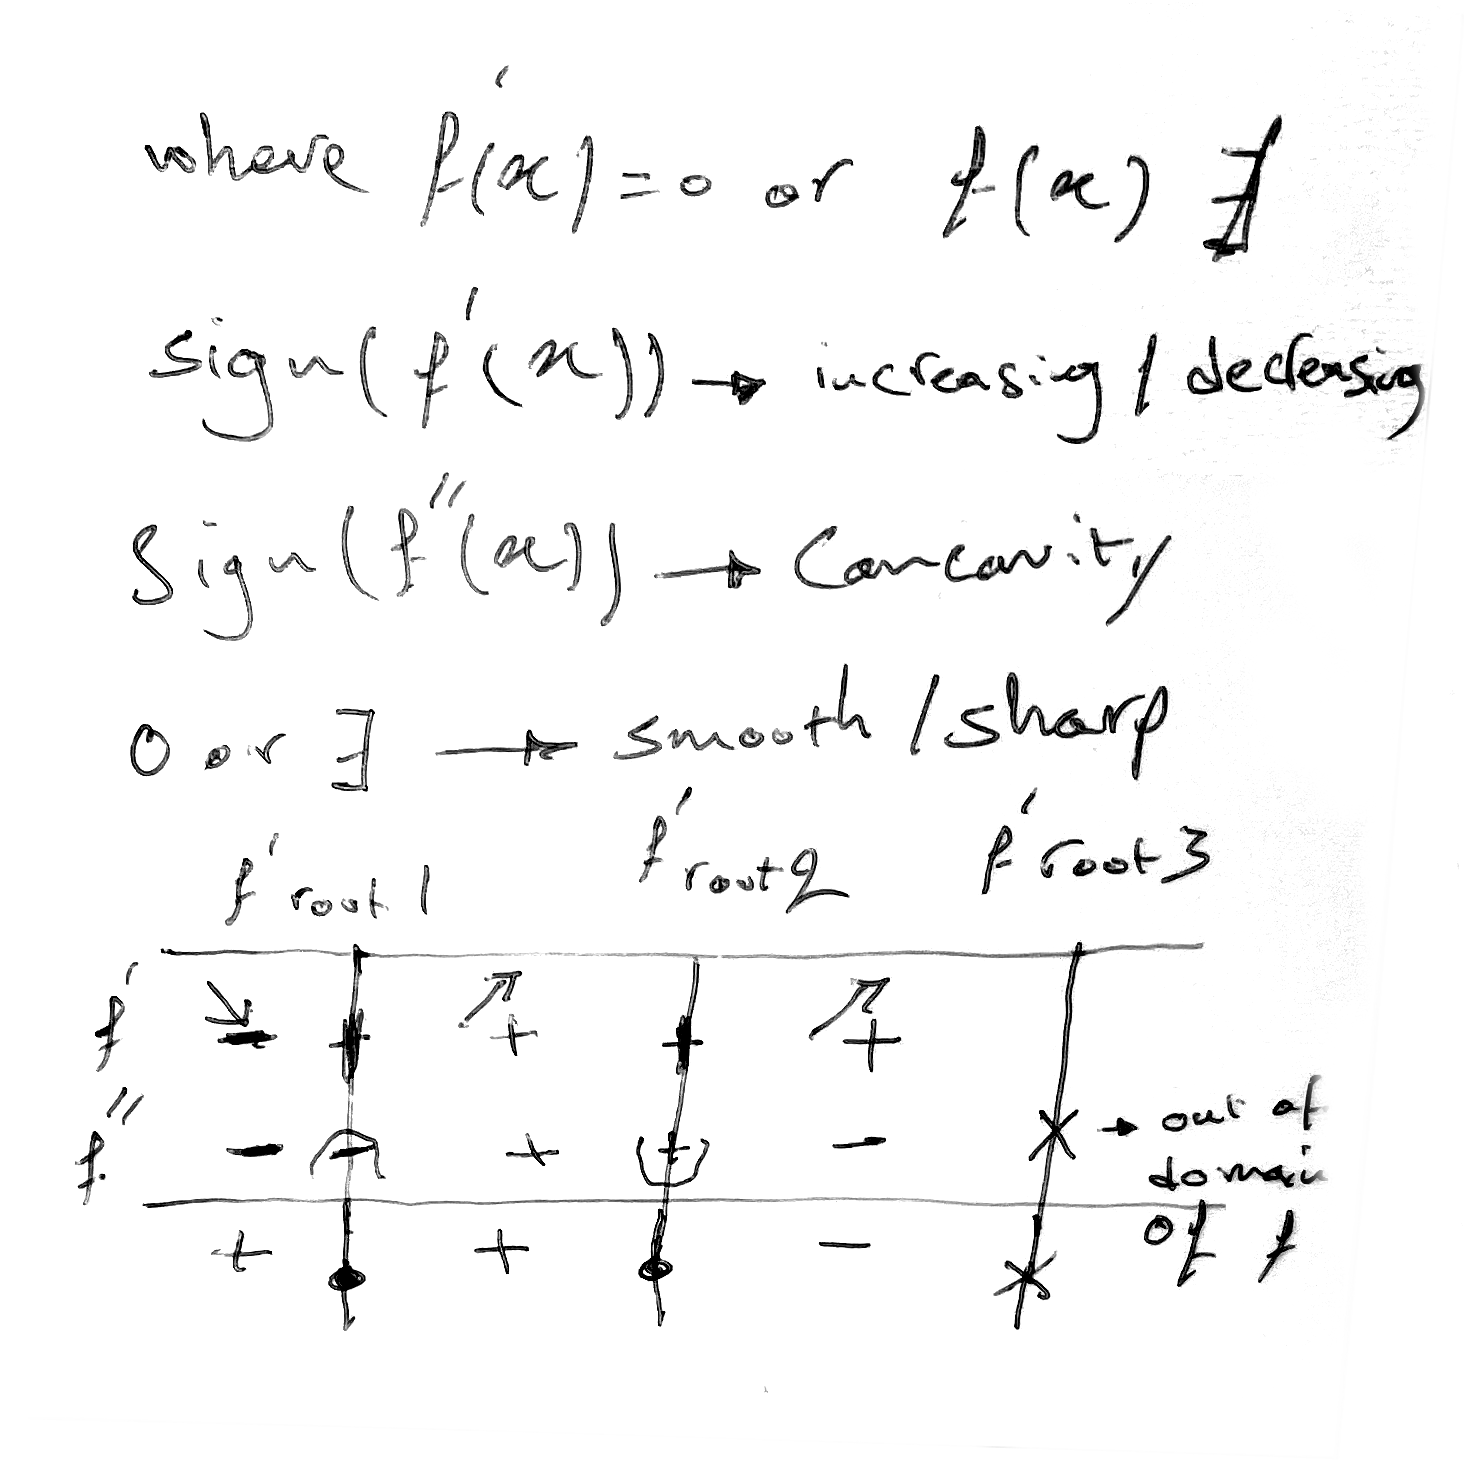 where f'(x) = 0 or f(x) ∄
sign(f'(x)) → increasing / decreasing
Sign(f''(x)) → Concavity
0 or ∃ → smooth / sharp
f' root 1 f' root 2 f' root 3
f' ↘ − + ↗ + + ↗ +
f'' − − + + − × → out of
domain
+ + − × of f